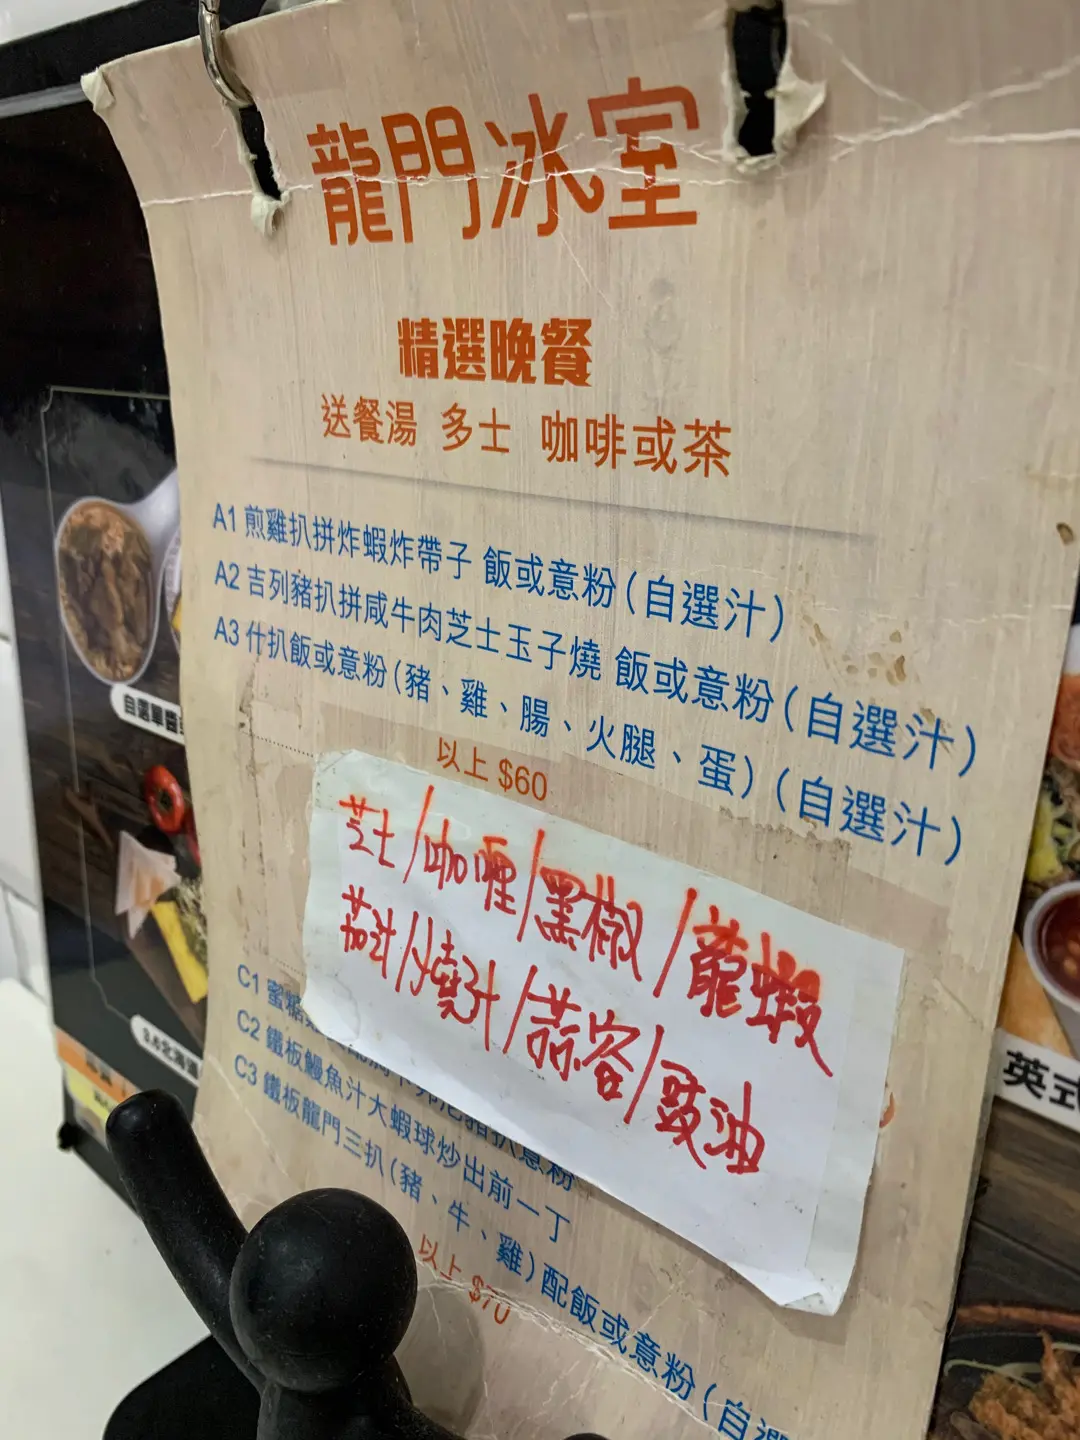 龍門冰室
精選晚餐
送餐湯 多士 咖啡或茶
A1 煎雞扒拼炸蝦炸帶子 飯或意粉(自選汁)
A2 吉列豬扒拼咸牛肉芝士玉子燒 飯或意粉(自選汁)
A3 什扒飯或意粉(豬、雞、腸、火腿、蛋)(自選汁)
以上 $60
芝士/咖喱/黑椒/龍蝦
茄汁/燒汁/蒜容/豉油
C1 蜜糖
意粉
C2 鐵板鰻魚汁大蝦球炒出前一丁
C3 鐵板龍門三扒(豬、牛、雞)配飯或意粉(自選
以上 $70
自選單
英式